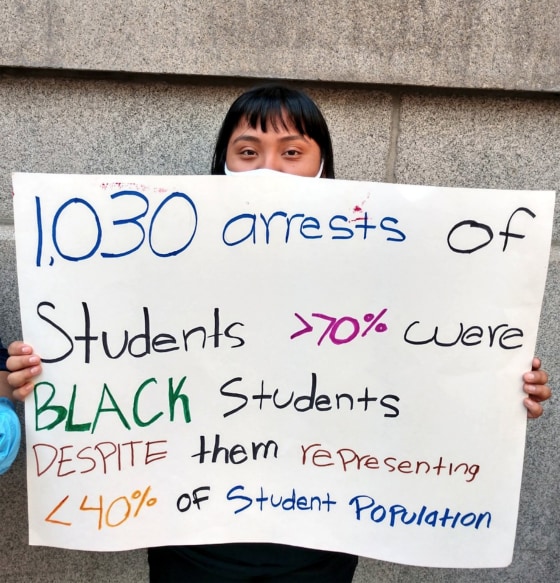 1,030 arrests of
Students >70% were
BLACK Students
DESPITE them representing
<40% OF Student Population